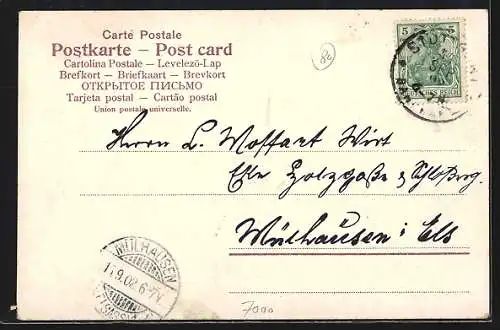 Carte Postale
Postkarte – Post card
Cartolina Postale – Levelező-Lap
Brefkort – Briefkaart – Brevkort
ОТКРЫТОЕ ПИСЬМО
Tarjeta postal – Cartão postal
Union postale universelle.
80
5 5
DEUTSCHES REICH
STUTT
Herrn L. Woffart Wirt
Holzgaße & Schloßerg.
Mülhausen i Els
MÜLHAUSEN
11.9.02.6-7V.
(ELSASS)
7000